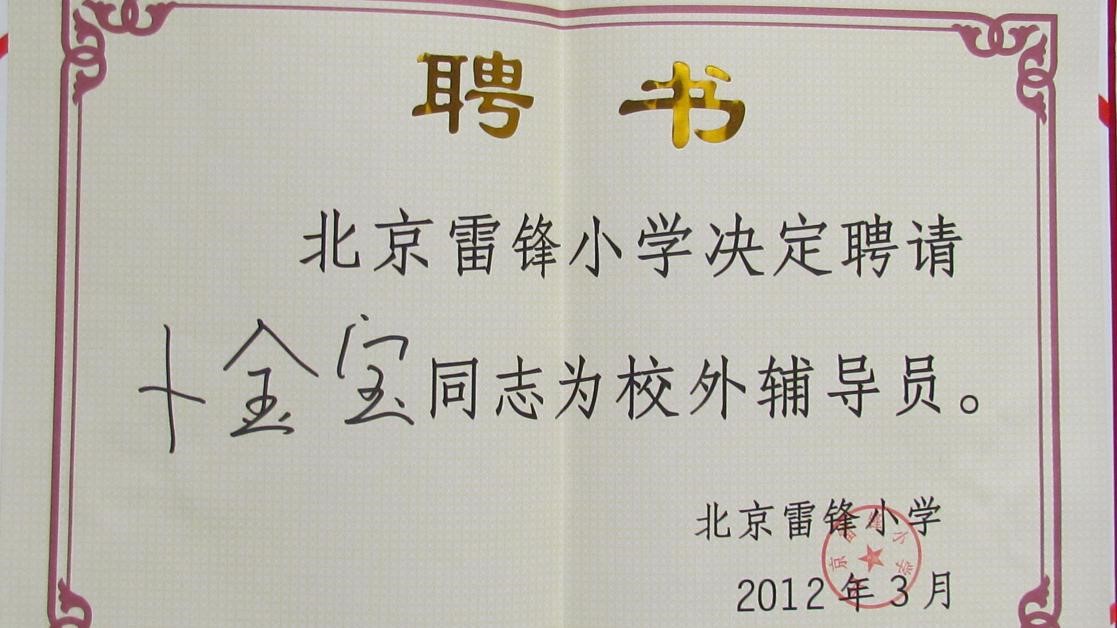 聘书
北京雷锋小学决定聘请
卜金宝同志为校外辅导员。
北京雷锋小学
2012年3月